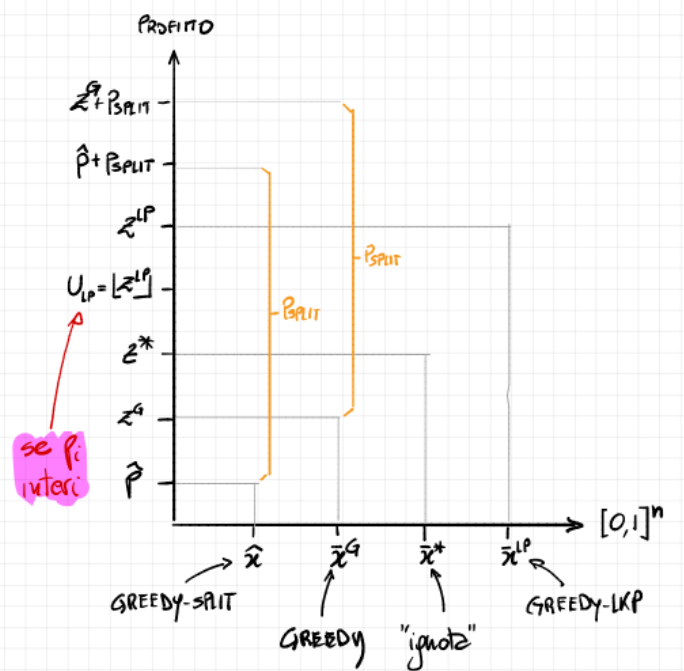 PROFITTO
z^G + P_SPLIT
p̂ + P_SPLIT
z^LP
U_LP = ⌊z^LP⌋
z*
z^G
p̂
P_SPLIT
P_SPLIT
se pi
interi
[0,1]^n
x̂
x̄^G
x̄*
x̄^LP
GREEDY-SPLIT
GREEDY
"ignota"
GREEDY-LKP